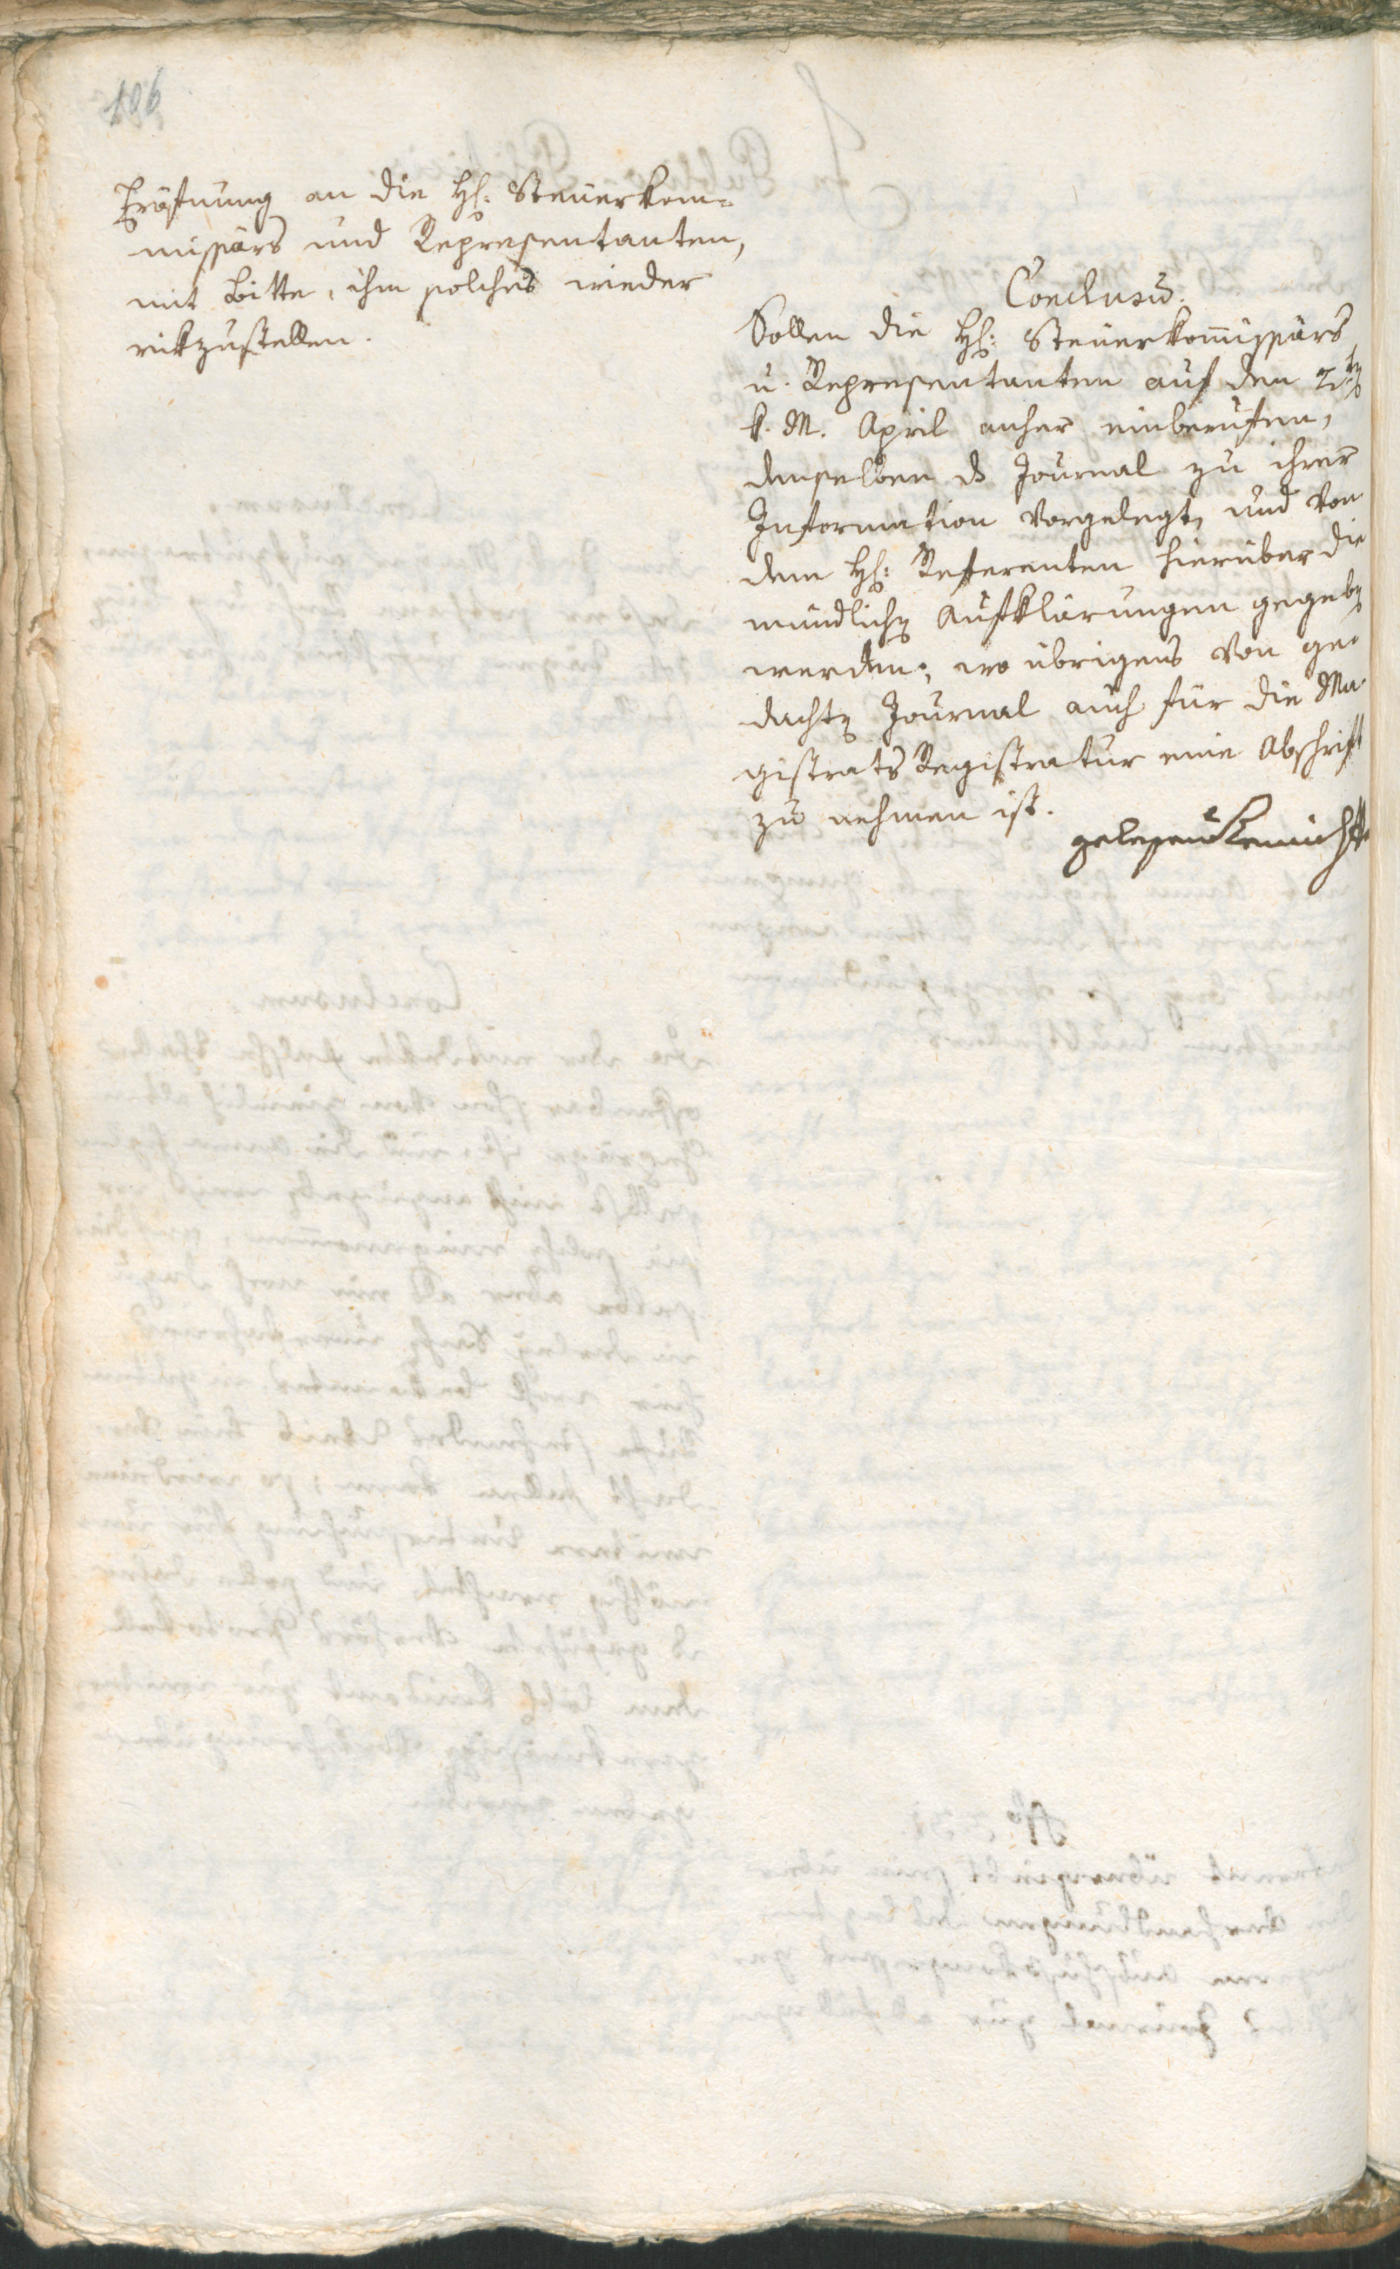 106
Eröfnung an die H: Steuerkom=
missärs und Representanten,
mit Bitte, ihm solches wieder
rükzustellen.
Conclusũ.
Sollen die H: Steuerkom̃issärs
u. Representanten auf den 2t
k. M. April anher einberufen,
denselben ds Journal zu ihrer
Information vorgelegt, und von
dem H: Referenten hierüber die
mündliche Aufklärungen gegeben
werden; wo übrigens von ge=
dachten Journal auch für die Ma=
gistrats Registratur eine Abschrift
zu nehmen ist.
gelesen